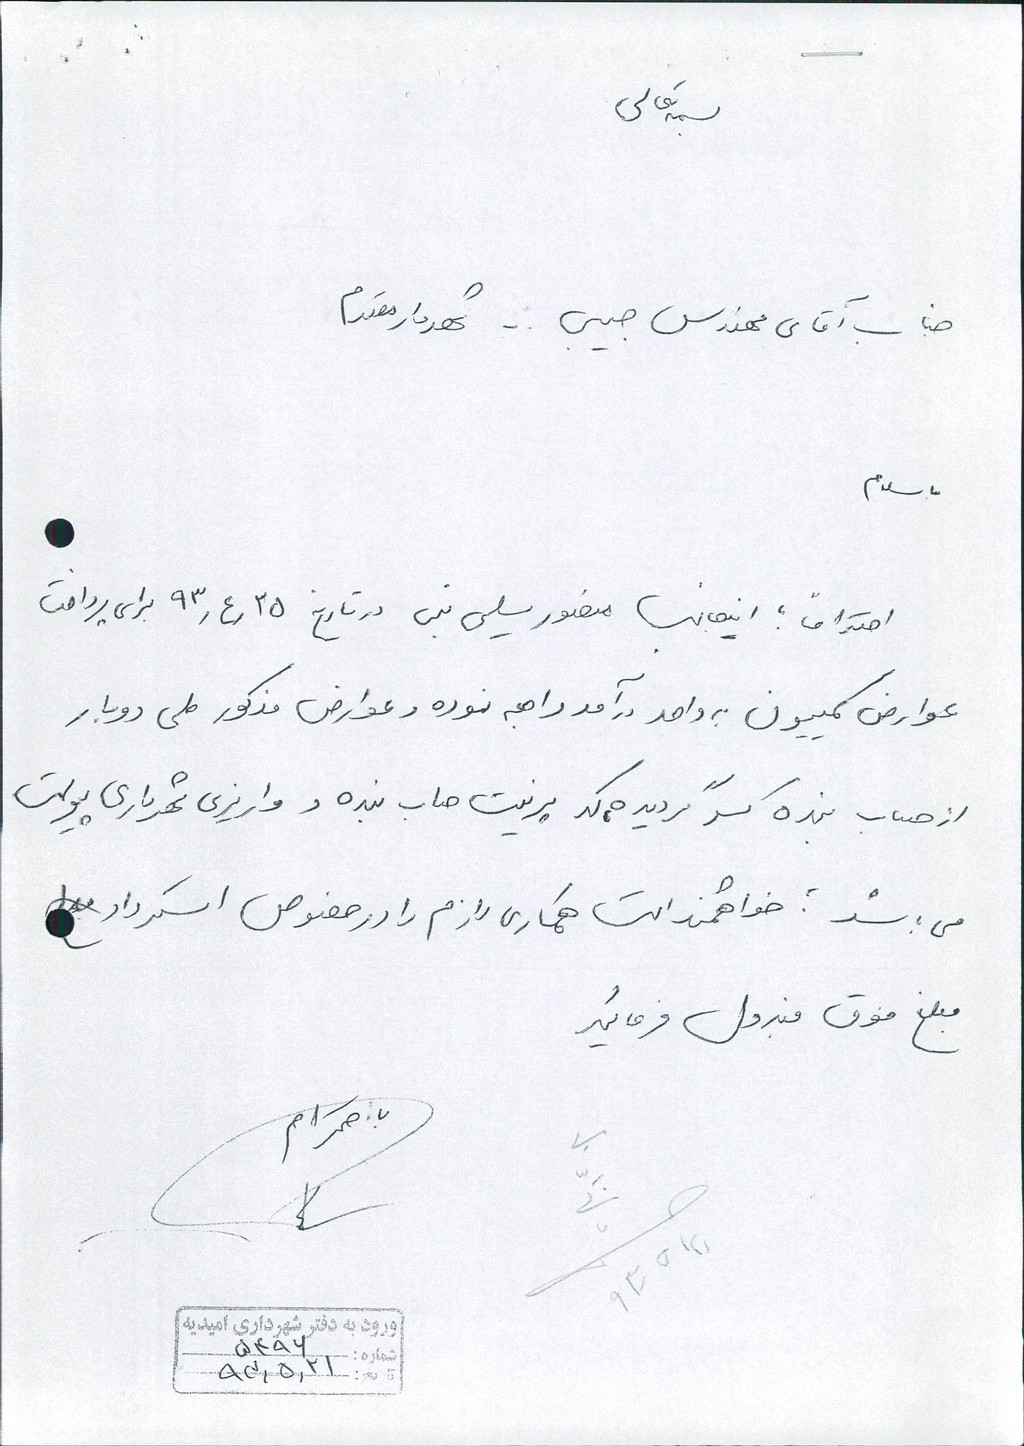 بسمه تعالی
جناب آقای مهندس حبیبی شهردار محترم
با سلام
احتراماً؛ اینجانب منصور سلیمی در تاریخ ۹۳٫۴٫۲۵ برای پرداخت
عوارض کمیسیون به واحد درآمد مراجعه نموده و عوارض مذکور طی دوبار
از حساب بنده کسر گردیده که پرینت حساب بنده و واریزی شهرداری پیوست
می باشد؛ خواهشمند است همکاری لازم را در خصوص استرداد
مبلغ فوق مبذول فرمائید
با احترام
۹۳٫۵٫۲۱
ورود به دفتر شهرداری امیدیه
شماره: ۵۴۹۶
تاریخ: ۹۳٫۵٫۲۱